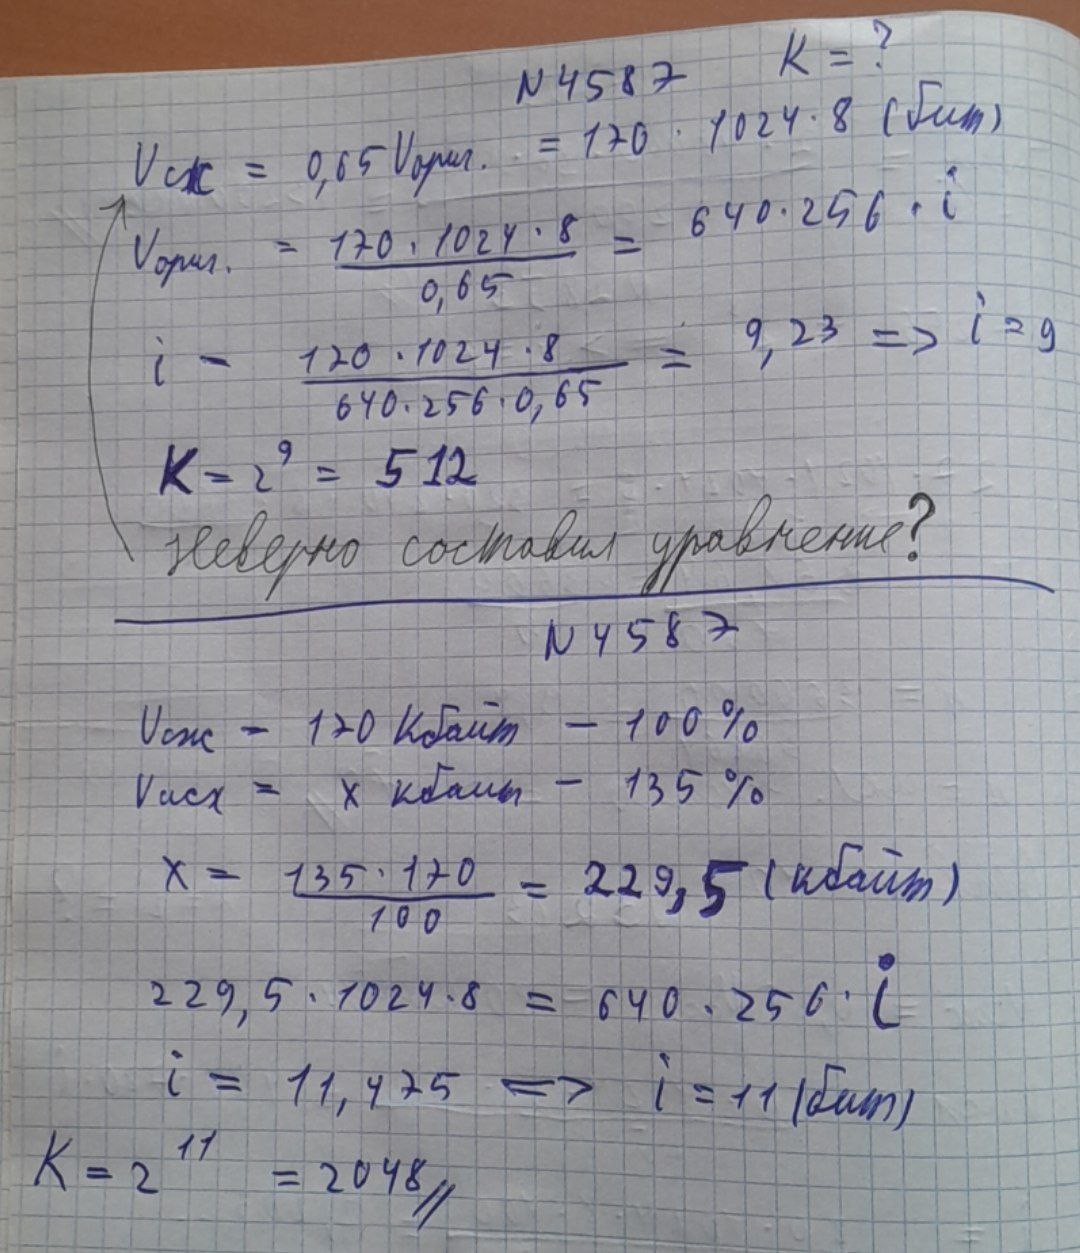 N4587 K = ?
Vсж = 0,65 Vориг. = 170 · 1024 · 8 (бит)
Vориг. = 170 · 1024 · 8 / 0,65 = 640 · 256 · i
i = 170 · 1024 · 8 / 640 · 256 · 0,65 = 9,23 => i = 9
K = 2^9 = 512
Неверно составил уравнение?
N4587
Vсж – 170 Кбайт – 100%
Vисх = x кбайт – 135%
x = 135 · 170 / 100 = 229,5 (кбайт)
229,5 · 1024 · 8 = 640 · 256 · i
i = 11,475 => i = 11 (бит)
K = 2^11 = 2048//